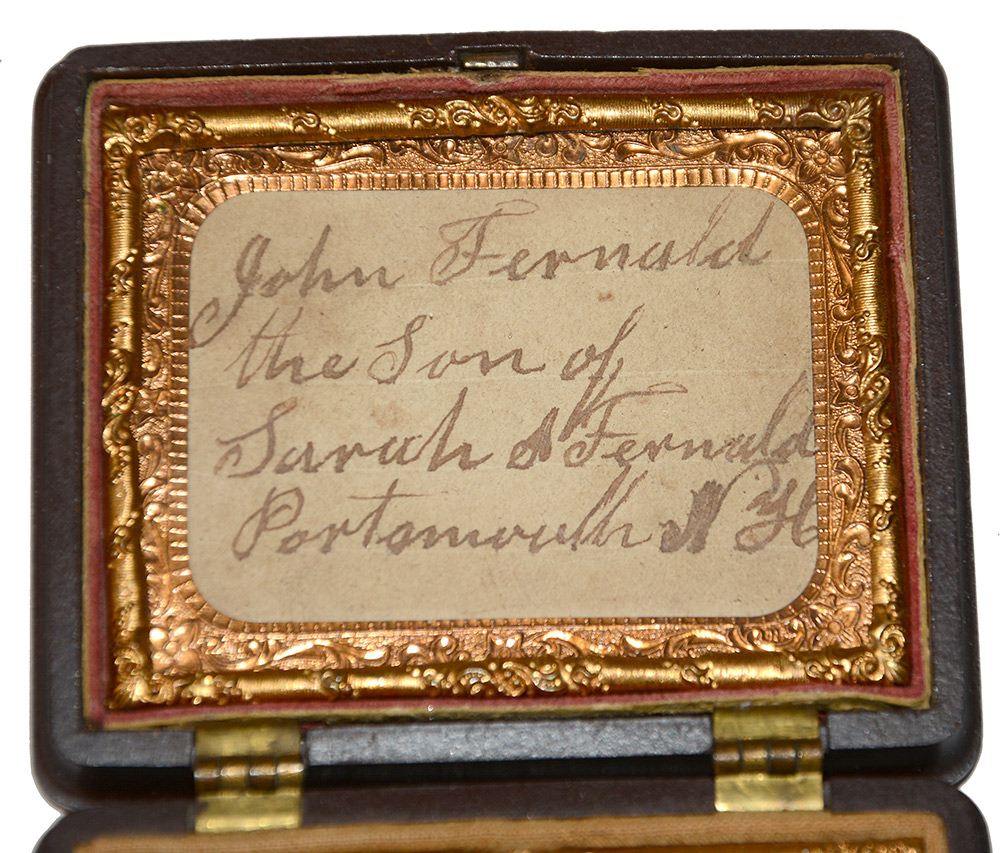 John Fernald
the Son of
Sarah A Fernald
Portsmouth N H